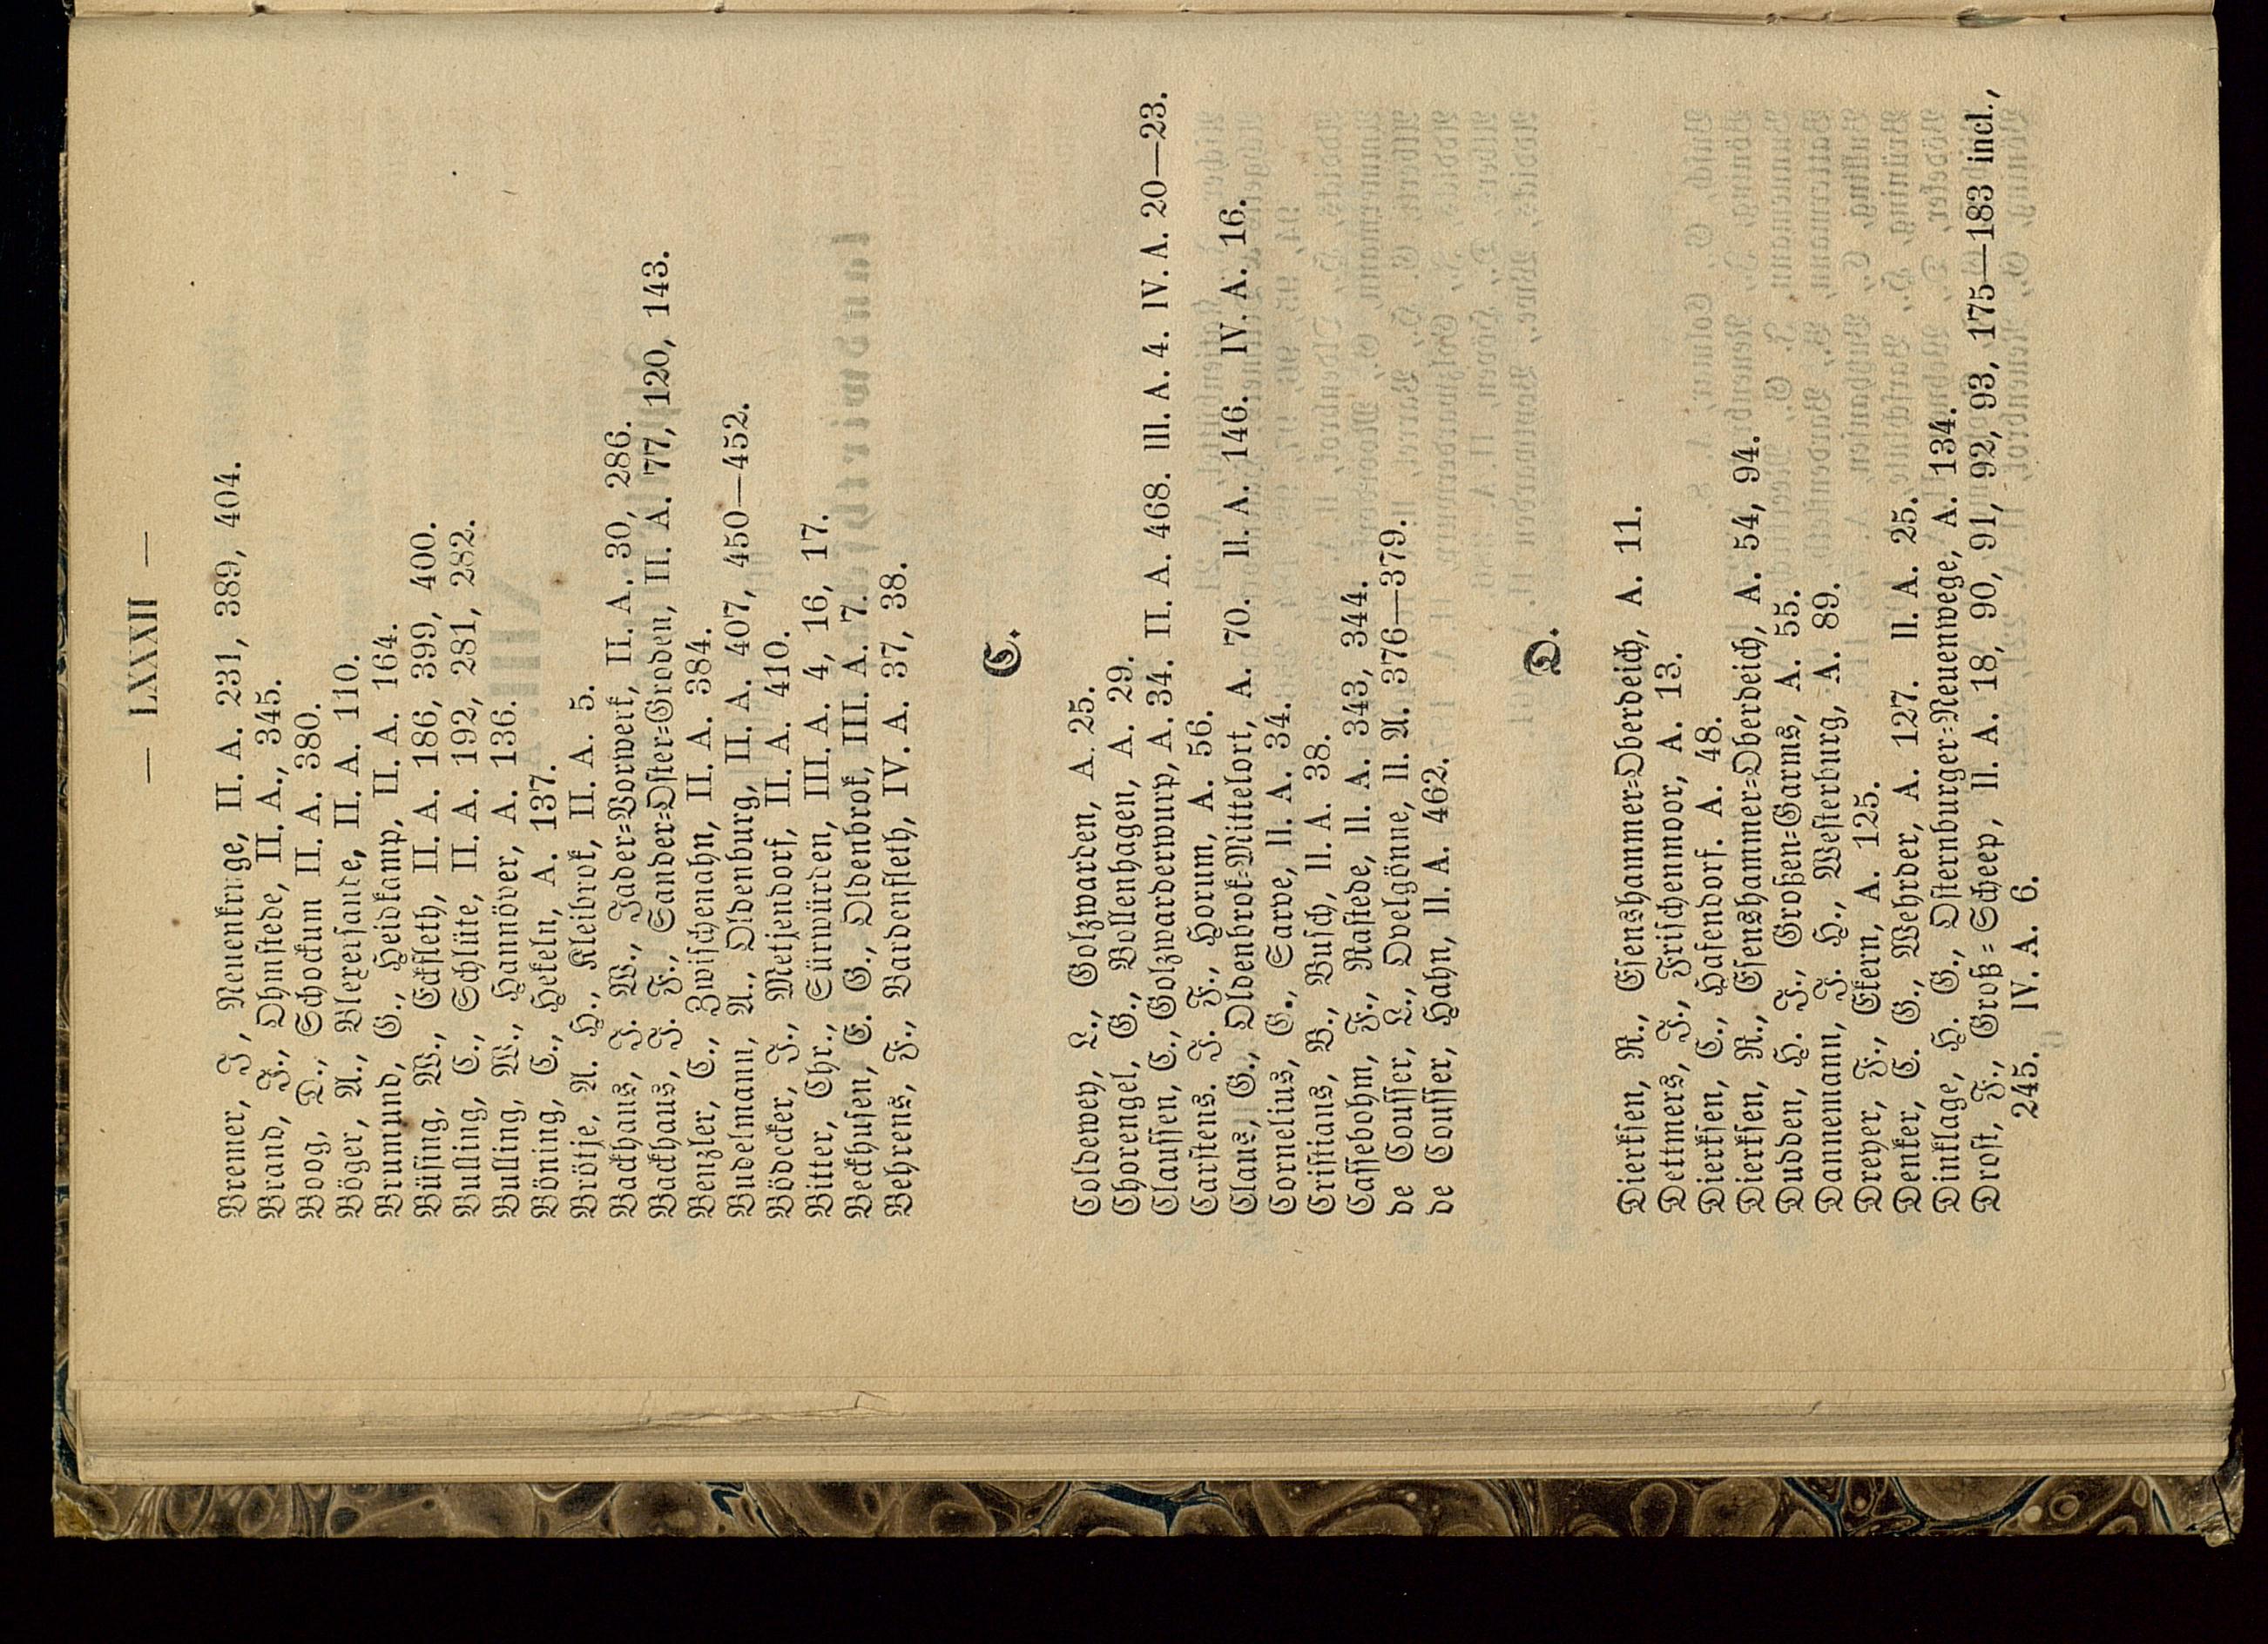 — LXXXII —
Bremer, J, Neuenkruge, II. A. 231, 389, 404.
Brand, J., Ohmstede, II. A., 345.
Boog, D., Schockum II. A. 380.
Böger, A., Blexersande, II. A. 110.
Brumund, G., Heidkamp, II. A. 164.
Büsing, W., Eckfleth, II. A. 186, 399, 400.
Bulling, C., Schlüte, II. A. 192, 281, 282.
Bulling, W., Hannöver, A. 136.
Böning, C., Hekeln, A. 137.
Brötje, A. H., Kleibrok, II. A. 5.
Backhaus, J. W., Jader-Vorwerk, II. A. 30, 286.
Backhaus, J. F., Sander-Oster-Groden, II. A. 77, 120, 143.
Benzler, C., Zwischenahn, II. A. 384.
Budelmann, A., Oldenburg, II. A. 407, 450—452.
Bödecker, J., Metjendorf, II. A. 410.
Bitter, Chr., Sürwürden, III. A. 4, 16, 17.
Beckhusen, E. G., Oldenbrok, III. A. 7.
Behrens, F., Bardenfleth, IV. A. 37, 38.
C.
Coldewey, L., Golzwarden, A. 25.
Chorengel, G., Bollenhagen, A. 29.
Claussen, C., Golzwarderwurp, A. 34. II. A. 468. III. A. 4. IV. A. 20—23.
Carstens. J. F., Horum, A. 56.
Claus, G., Oldenbrok-Mittelort, A. 70. II. A. 146. IV. A. 16.
Cornelius, G., Sarve, II. A. 34.
Cristians, B., Busch, II. A. 38.
Cassebohm, F., Rastede, II. A. 343, 344.
de Cousser, L., Ovelgönne, II. A. 376—379.
de Cousser, Hahn, II. A. 462.
D.
Dierksen, R., Esenshammer-Oberdeich, A. 11.
Dettmers, J., Frischenmoor, A. 13.
Dierksen, C., Hafendorf. A. 48.
Dierksen, R., Esenshammer-Oberdeich, A. 54, 94.
Dudden, H. J., Großen-Garms, A. 55.
Dannemann, J. H., Westerburg, A. 89.
Dreyer, F., Ekern, A. 125.
Denker, C. G., Wehrder, A. 127. II. A. 25.
Dinklage, H. G., Osternburger-Neuenwege, A. 134.
Drost, F., Groß-Scheep, II. A. 18, 90, 91, 92, 93, 175—183 incl.,
245. IV. A. 6.